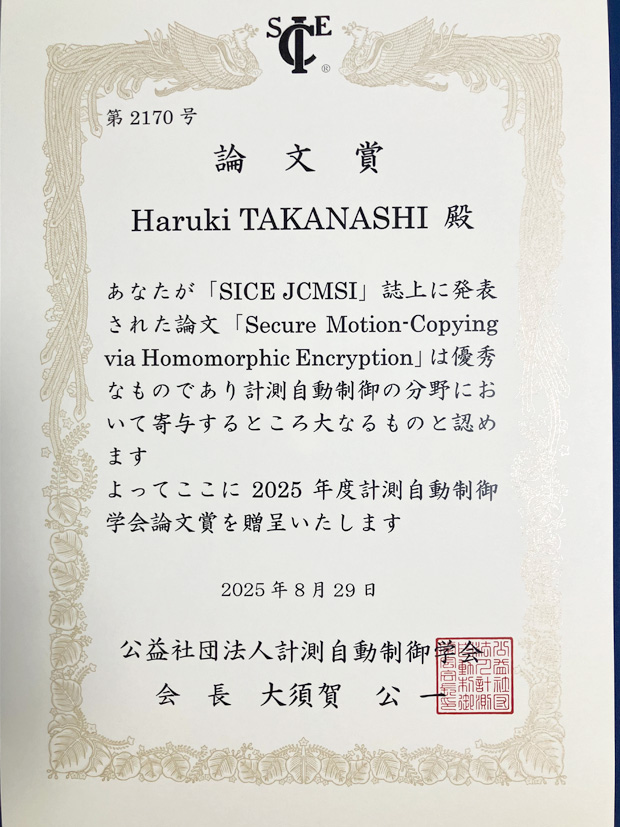 SICE
®
第2170号
論文賞
Haruki TAKANASHI 殿
あなたが「SICE JCMSI」誌上に発表
された論文「Secure Motion-Copying
via Homomorphic Encryption」は優秀
なものであり計測自動制御の分野にお
いて寄与するところ大なるものと認め
ます
よってここに 2025 年度計測自動制御
学会論文賞を贈呈いたします
2025年8月29日
公益社団法人計測自動制御学会
会長 大須賀 公一